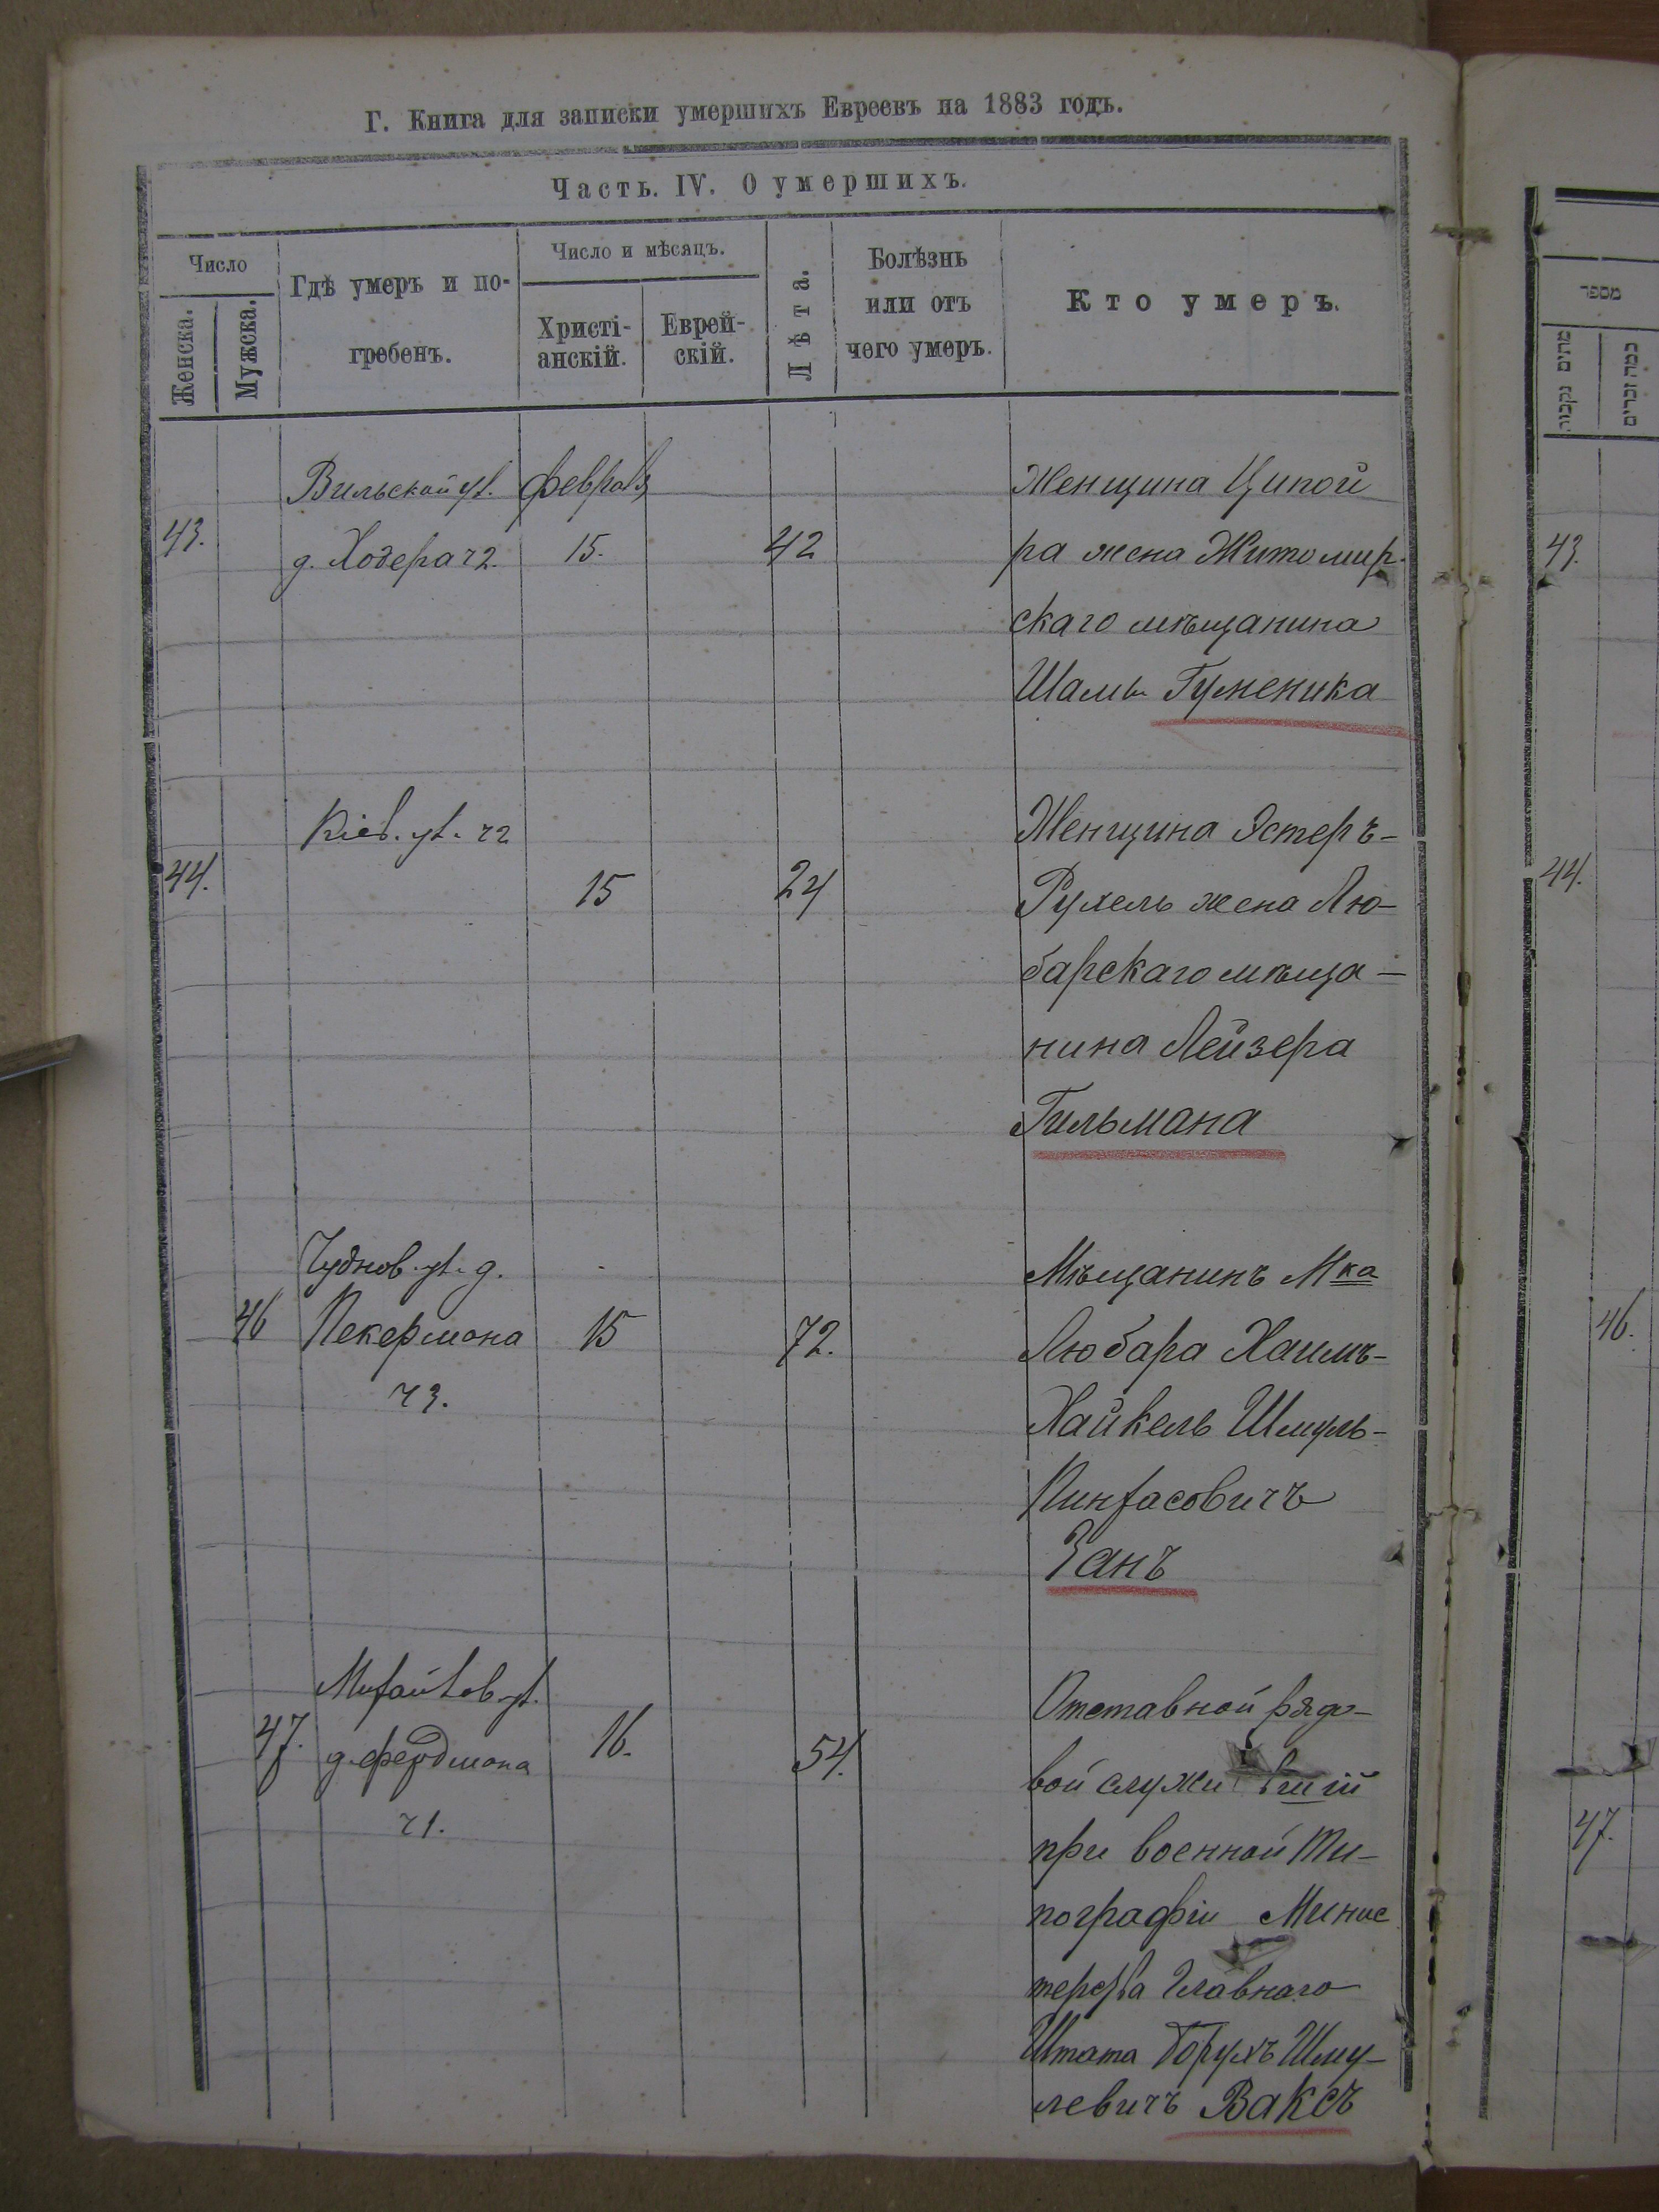 Г. Книга для записки умершихъ Евреевъ на 1883 годъ.
Часть. IV. О умершихъ.
Число
Женска.
Мужска.
Гдѣ умеръ и по-
гребенъ.
Число и мѣсяцъ.
Христі-
анскій.
Еврей-
скій.
Лѣта.
Болѣзнь
или отъ
чего умеръ.
Кто умеръ.
מספר
Вильской ул. февраля
43. д. Ходера ч2. 15. 42
Женщина Ципой
ра жена Житомир.
скаго мѣщанина
Гуменика
Кіев. ул. ч2
44. 15 24
Женщина Эстеръ-
Рухель жена Лю-
барскаго мѣща-
нина Лейзера
Гильмана
Чуднов. ул. д.
46 Пекермана 15 72.
ч3.
Мѣщанинъ Мка
Любара Хаимъ-
Хайкель Шмуль-
Пинхасовичъ
Занъ
Михайлов. ул.
47. д. 16. 54.
ч1.
Отставной рядо-
вой служившій
при военной Ти-
пографіи Минис
терства Главнаго
Штата Борухъ Шму-
левичъ Ваксъ
43.
44.
46.
47.